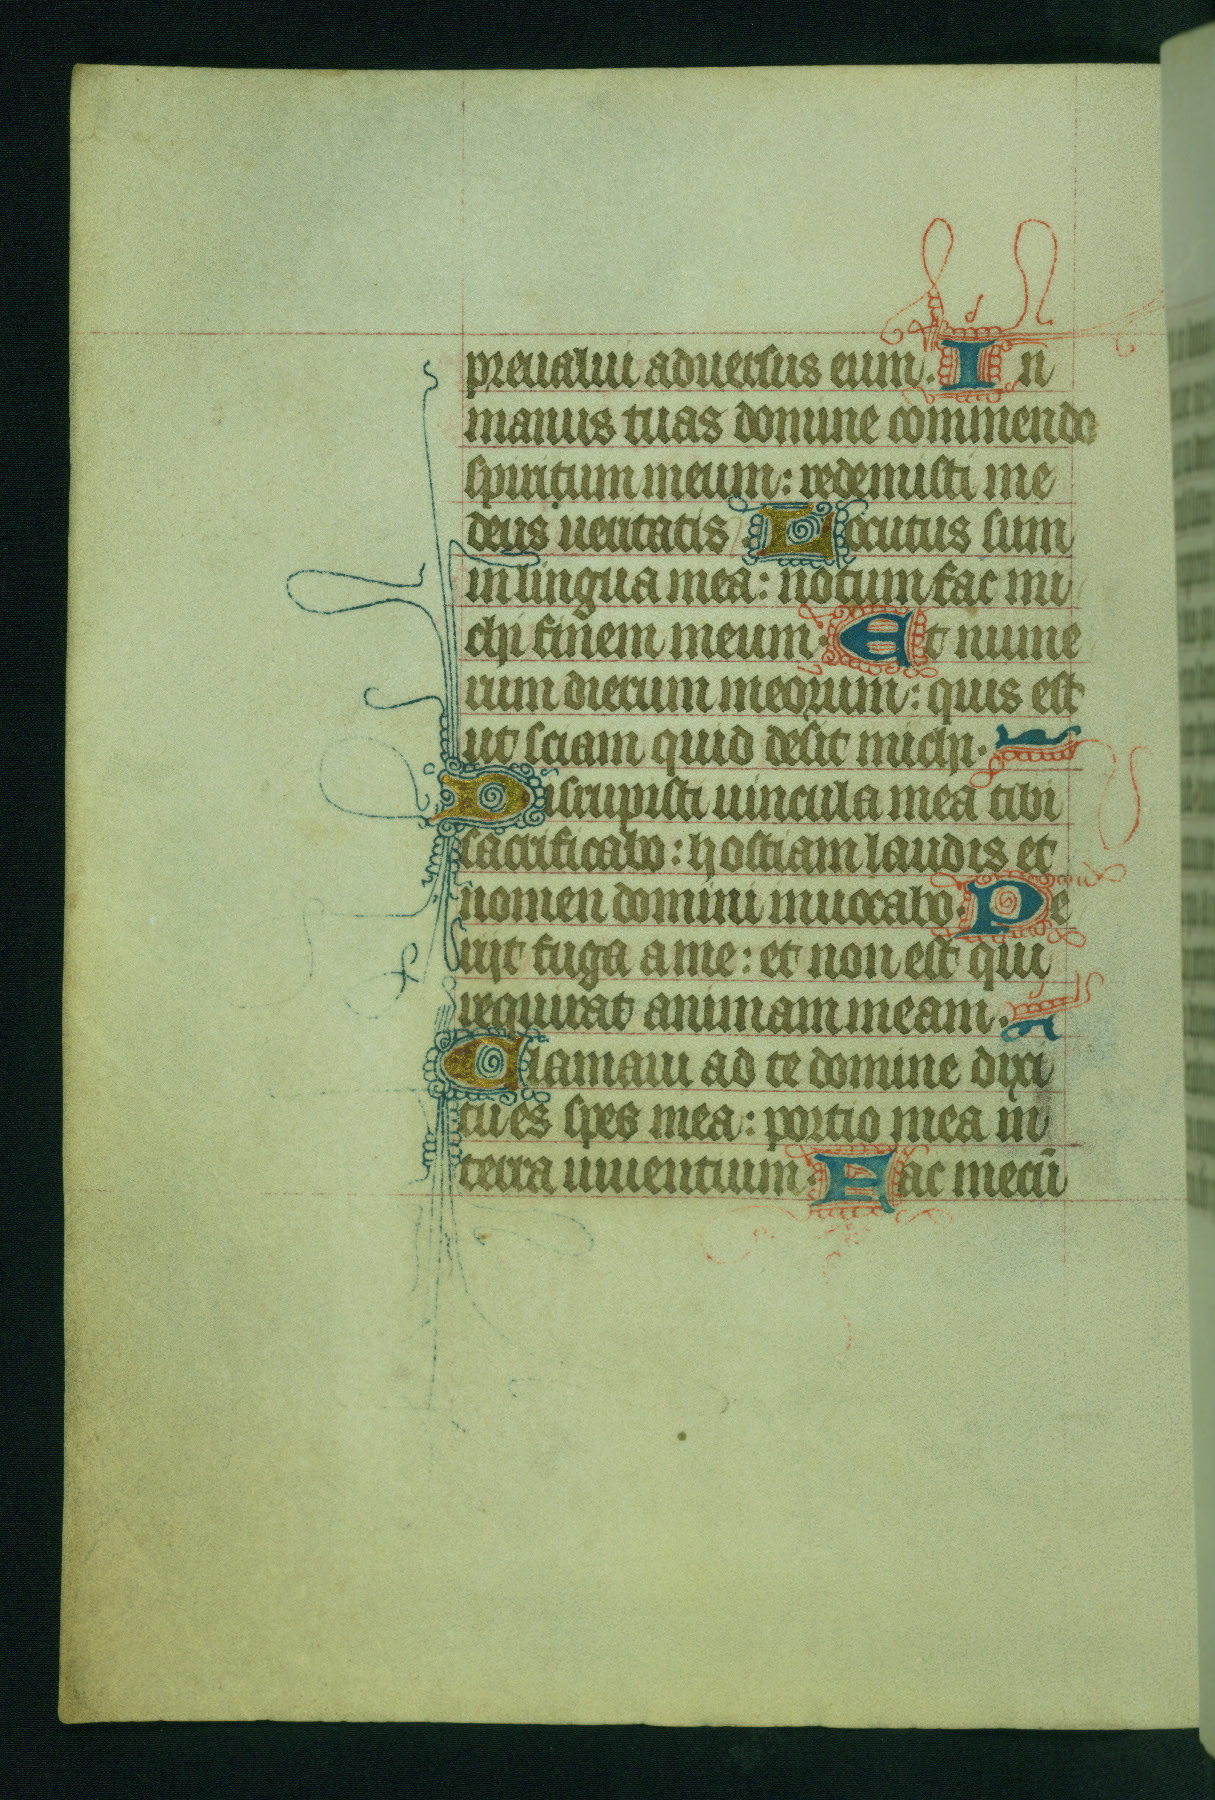 preualui aduersus eum. In
manus tuas domine commendo
spiritum meum: redemisti me
deus ueritatis. Locutus sum
in lingua mea: notum fac mi
chi finem meum. Et nume
rum dierum meorum: quis est
ut sciam quid desit michi.
Disrupisti uincula mea tibi
sacrificabo: hostiam laudis et
nomen domini inuocabo. Pe
riit fuga a me: et non est qui
requirat animam meam.
Clamaui ad te domine dixi
tu es spes mea: portio mea in
terra uiuentium. Fac mecū